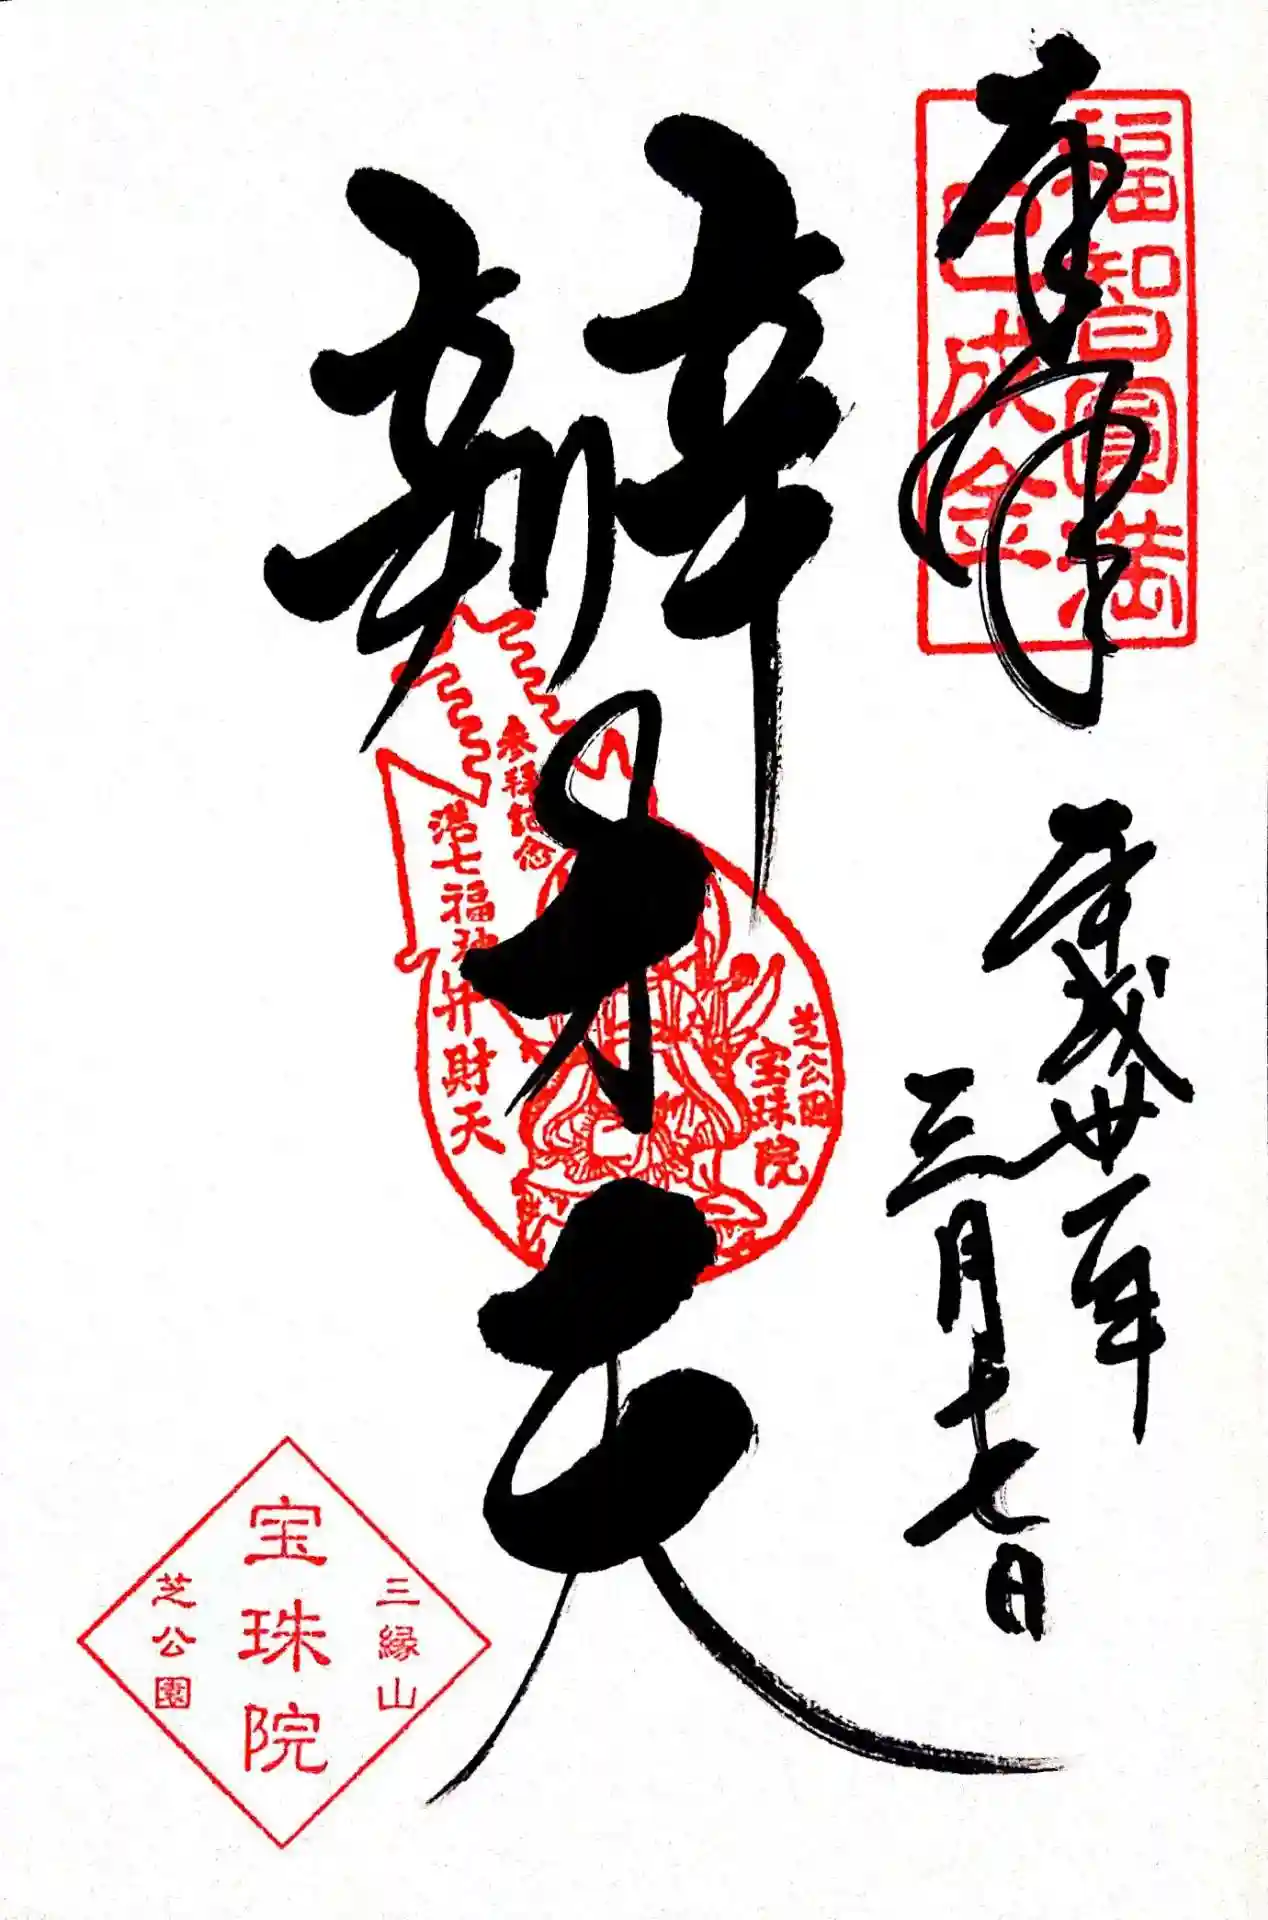 奉拝
福智圓満
巳成金
平成丗一年
三月十七日
辨才天
参拝記念
港七福神弁財天
芝公園
宝珠院
三縁山
宝珠院
芝公園